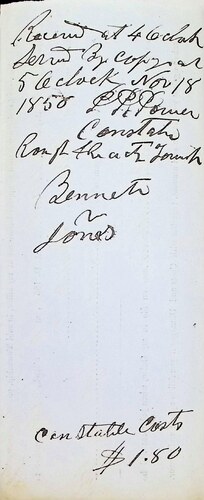 Received at 4 Oclock
Served By copy at
5 Oclock Nov 18
1858 Power
Constable
Rough &
Bennett
v
Jones
Constable Costs
$1.80